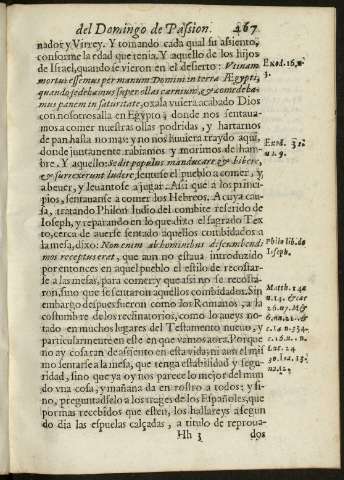 del Domingo de Passion. 467
nador y Virrey. Y tomando cada qual su assiento,
conforme la edad que tenia. Y aquello de los hijos
de Israel, quando se vieron en el desierto: Vtinam
mortui essemus per manum Domini in terra Ægypti,
quando sedebamus super ollas carnium, & comedeba-
mus panem in saturitate, oxala vuiera acabado Dios
con nosotros alla en Egypto, donde nos sentaua-
mos a comer nuestras ollas podridas, y hartarnos
de pan hasta no mas: y no nos huuiera traydo aqui,
donde juntamente rabiamos y morimos de ham-
bre. Y aquello: Sedit populus manducare, & bibere,
& surrexerunt ludere, sentose el pueblo a comer, y
a beuer, y leuantose a jugar. Assi que a los princi-
pios, sentauanse a comer los Hebreos. A cuya cau-
sa, tratando Philon Iudio del combite referido de
Ioseph, y reparando en lo que dize el sagrado Tex
to, cerca de auerse sentado aquellos combidados a
la mesa, dixo: Non enim ab hominibus discumbendi
mos receptus erat, que aun no estaua introduzido
por entonces en aquel pueblo el estilo de recostar-
se a las mesas, para comer, y que assi no se recosta-
ron, sino que se sentaron aquellos combidados. Sin
embargo despues fueron como los Romanos, a la
costumbre de los reclinatorios, como lo aueys no-
tado en muchos lugares del Testamento nueuo, y
particularmente en este en que vamos aora. Porque
no ay cosa tan de assiento en esta vida, ni aun el mis
mo sentarse a la mesa, que tenga estabilidad y segu-
ridad, sino que ya oy nos parece lo mejor del mun
do vna cosa, y mañana da en rostro a todos: y si-
no, preguntadselo a los trages de los Españoles, que
por mas recebidos que esten, los hallareys a segun
do dia las espuelas calçadas, a titulo de reproua-
Hh 3 dos
Exod. 16. n.
3.
Exod. 32.
n. 9.
Philo lib. de
Ioseph.
Matth. 14.
n. 14. & car
26. n. 7. M
6. nu. 21. &
Luc. 24
30. Ioa. 13.
nu. 12.